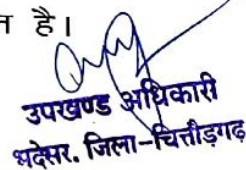 है।
उपखण्ड अधिकारी
भदेसर. जिला-चित्तौड़गढ़